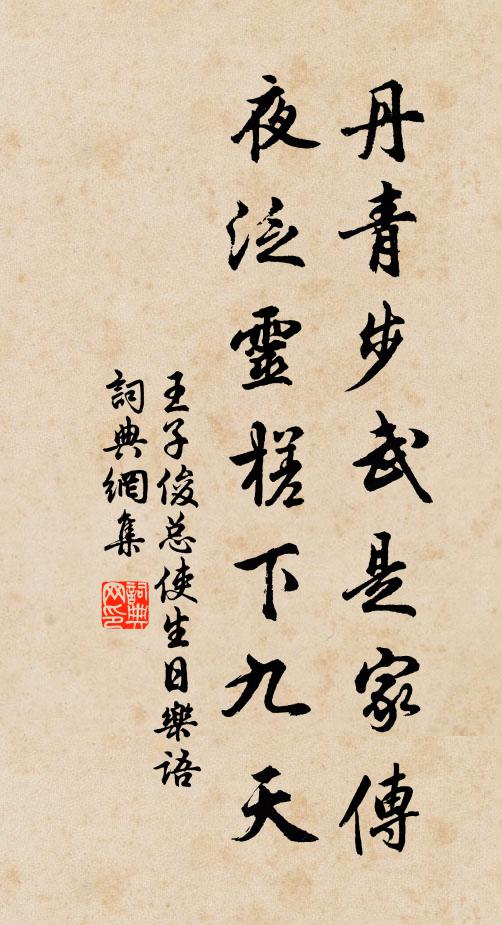 丹青步武是家傳
夜泛靈槎下九天
王子俊总使生日樂語
詞典網集
詞典
网印